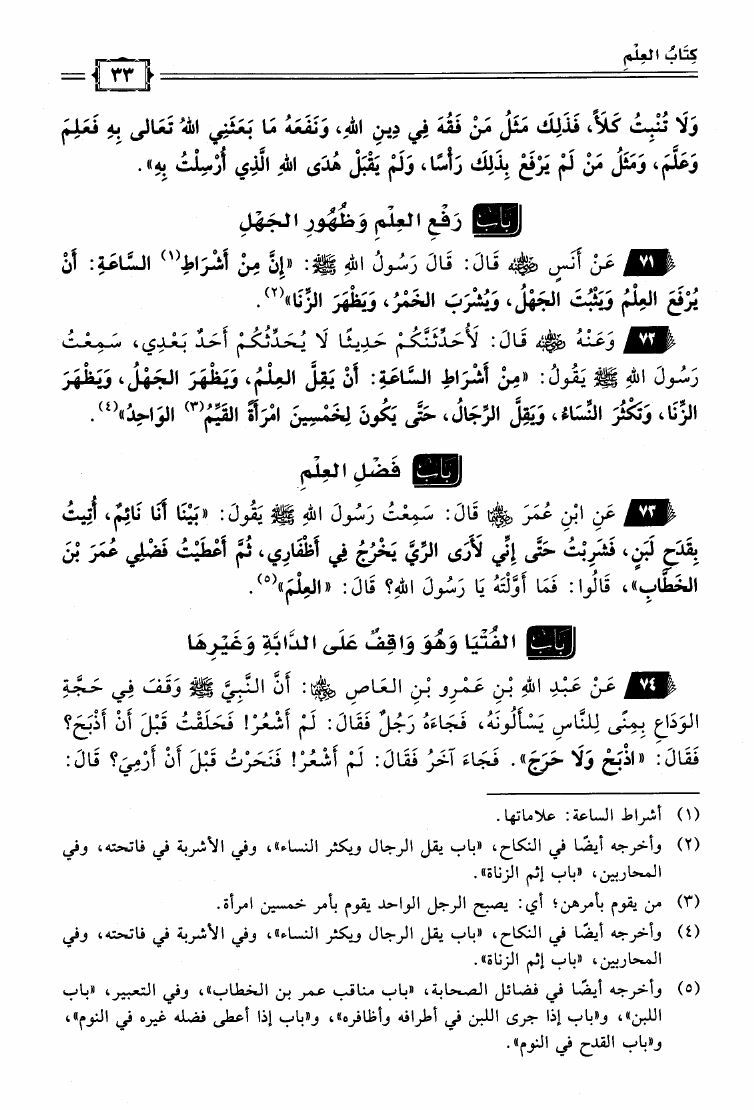 كِتَابُ العِلْمِ
٣٣
وَلَا تُنْبِتُ كَلَأً، فَذَلِكَ مَثَلُ مَنْ فَقُهَ فِي دِينِ اللهِ، وَنَفَعَهُ مَا بَعَثَنِي اللهُ تَعَالى بِهِ فَعَلِمَ
وَعَلَّمَ، وَمَثَلُ مَنْ لَمْ يَرْفَعْ بِذَلِكَ رَأْسًا، وَلَمْ يَقْبَلْ هُدَى اللهِ الَّذِي أُرْسِلْتُ بِهِ».
بَابُ رَفْعِ العِلْمِ وَظُهُورِ الجَهْلِ
٧١ عَنْ أَنَسٍ رضي الله عنه قَالَ: قَالَ رَسُولُ اللهِ ﷺ: «إِنَّ مِنْ أَشْرَاطِ(١) السَّاعَةِ: أَنْ
يُرْفَعَ العِلْمُ وَيَثْبُتَ الجَهْلُ، وَيُشْرَبَ الخَمْرُ، وَيَظْهَرَ الزِّنَا»(٢).
٧٢ وَعَنْهُ رضي الله عنه قَالَ: لَأُحَدِّثَنَّكُمْ حَدِيثًا لَا يُحَدِّثُكُمْ أَحَدٌ بَعْدِي، سَمِعْتُ
رَسُولَ اللهِ ﷺ يَقُولُ: «مِنْ أَشْرَاطِ السَّاعَةِ: أَنْ يَقِلَّ العِلْمُ، وَيَظْهَرَ الجَهْلُ، وَيَظْهَرَ
الزِّنَا، وَتَكْثُرَ النِّسَاءُ، وَيَقِلَّ الرِّجَالُ، حَتَّى يَكُونَ لِخَمْسِينَ امْرَأَةً القَيِّمُ(٣) الوَاحِدُ»(٤).
بَابُ فَضْلِ العِلْمِ
٧٣ عَنِ ابْنِ عُمَرَ رضي الله عنهما قَالَ: سَمِعْتُ رَسُولَ اللهِ ﷺ يَقُولُ: «بَيْنَا أَنَا نَائِمٌ، أُتِيتُ
بِقَدَحِ لَبَنٍ، فَشَرِبْتُ حَتَّى إِنِّي لَأَرَى الرِّيَّ يَخْرُجُ فِي أَظْفَارِي، ثُمَّ أَعْطَيْتُ فَضْلِي عُمَرَ بْنَ
الخَطَّابِ»، قَالُوا: فَمَا أَوَّلْتَهُ يَا رَسُولَ اللهِ؟ قَالَ: «العِلْمَ»(٥).
بَابُ الفُتْيَا وَهُوَ وَاقِفٌ عَلَى الدَّابَّةِ وَغَيْرِهَا
٧٤ عَنْ عَبْدِ اللهِ بْنِ عَمْرِو بْنِ العَاصِ رضي الله عنهما: أَنَّ النَّبِيَّ ﷺ وَقَفَ فِي حَجَّةِ
الوَدَاعِ بِمِنًى لِلنَّاسِ يَسْأَلُونَهُ، فَجَاءَهُ رَجُلٌ فَقَالَ: لَمْ أَشْعُرْ! فَحَلَقْتُ قَبْلَ أَنْ أَذْبَحَ؟
فَقَالَ: «اذْبَحْ وَلَا حَرَجَ». فَجَاءَ آخَرُ فَقَالَ: لَمْ أَشْعُرْ! فَنَحَرْتُ قَبْلَ أَنْ أَرْمِيَ؟ قَالَ:
(١) أشراط الساعة: علاماتها.
(٢) وأخرجه أيضًا في النكاح، «باب يقل الرجال ويكثر النساء»، وفي الأشربة في فاتحته، وفي
المحاربين، «باب إثم الزناة».
(٣) من يقوم بأمرهن؛ أي: يصبح الرجل الواحد يقوم بأمر خمسين امرأة.
(٤) وأخرجه أيضًا في النكاح، «باب يقل الرجال ويكثر النساء»، وفي الأشربة في فاتحته، وفي
المحاربين، «باب إثم الزناة».
(٥) وأخرجه أيضًا في فضائل الصحابة، «باب مناقب عمر بن الخطاب»، وفي التعبير، «باب
اللبن»، و«باب إذا جرى اللبن في أطرافه وأظافره»، و«باب إذا أعطى فضله غيره في النوم»،
و«باب القدح في النوم».